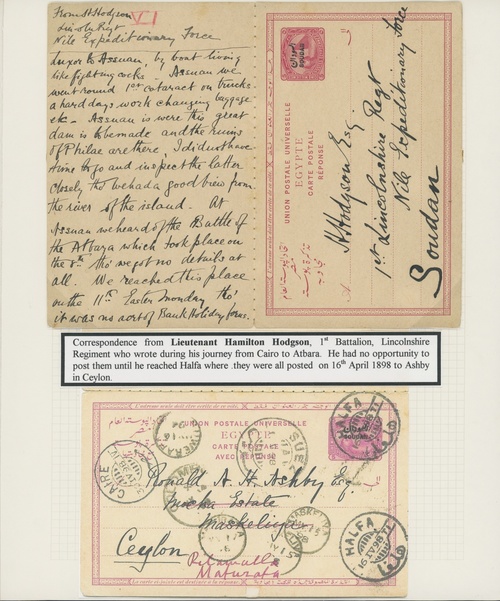 From H. Hodgson
VI
Lincoln Regt
Nile Expeditionary Force
Luxor to Assuan, by boat living
like fighting cocks. Assuan we
went round 1st cataract on trucks
a hard days work changing baggage
etc - Assuan is were this great
dam is to be made and the ruins
of Philae are there. I did not have
time to go and inspect the latter
closely tho' we had a good view from
the river of the island. At
Assuan we heard of the Battle of
the Atbara which took place on
the 8th tho' we got no details at
all. We reached this place
on the 11th Easter Monday tho'
it was no sort of Bank Holiday for us.
UNION POSTALE UNIVERSELLE
EGYPTE
CARTE POSTALE
RÉPONSE
SOUDAN
السودان
H. Hodgson Esq.
1st Lincolnshire Regt
Nile Expeditionary Force
Soudan
Correspondence from Lieutenant Hamilton Hodgson, 1st Battalion, Lincolnshire
Regiment who wrote during his journey from Cairo to Atbara. He had no opportunity to
post them until he reached Halfa where .they were all posted on 16th April 1898 to Ashby
in Ceylon.
UNION POSTALE UNIVERSELLE
EGYPTE
CARTE POSTALE
AVEC RÉPONSE
SOUDAN
HALFA
CAIRE
SUEZ
Ronald A. H. Ashby Esq.
Mocha Estate
Maskeliya
MASKELIYA
HALFA
16 IV 98
Ceylon
Maturata